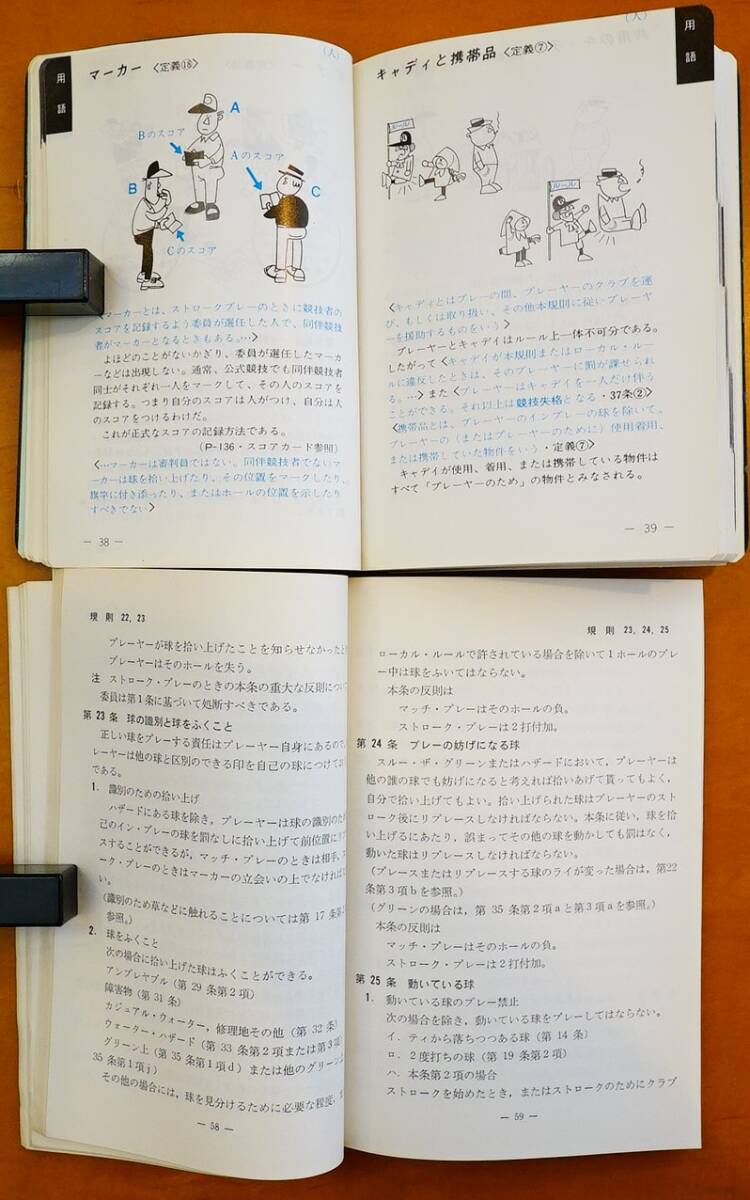 (人)
用語
マーカー〈定義⑯〉
A
Bのスコア
Aのスコア
B
C
Cのスコア
〈マーカーとは、ストロークプレーのときに競技者の
スコアを記録するよう委員が選任した人で、同伴競技
者がマーカーとなるときもある。…〉
よほどのことがないかぎり、委員が選任したマーカ
ーなどは出現しない。通常、公式競技でも同伴競技者
同士がそれぞれ一人をマークして、その人のスコアを
記録する。つまり自分のスコアは人がつけ、自分は人
のスコアをつけるわけだ。
これが正式なスコアの記録方法である。
(P-136・スコアカード参照)
〈…マーカーは審判員ではない。同伴競技者でないマ
ーカーは球を拾い上げたり、その位置をマークしたり、
旗竿に付き添ったり、またはホールの位置を示したり
すべきでない〉
— 38 —
(人)
用語
キャディと携帯品〈定義⑦〉
ルール
ルール
〈キャディとはプレーの間、プレーヤーのクラブを運
び、もしくは取り扱い、その他本規則に従いプレーヤ
ーを援助するものをいう〉
プレーヤーとキャディはルール上一体不可分である。
したがって〈キャディが本規則またはローカル・ルー
ルに違反したときは、そのプレーヤーに罰が課せられ
る。…〉また〈プレーヤーはキャディを一人だけ伴う
ことができる。それ以上は競技失格となる・37条②〉
〈携帯品とは、プレーヤーのインプレーの球を除いて、
プレーヤーの(またはプレーヤーのために)使用着用、
または携帯していた物件をいう・定義⑦〉
キャディが使用、着用、または携帯している物件は
すべて「プレーヤーのため」の物件とみなされる。
— 39 —
規則 22, 23
プレーヤーが球を拾い上げたことを知らせなかったと
プレーヤーはそのホールを失う。
注 ストローク・プレーのときの本条の重大な反則につい
委員は第1条に基づいて処断すべきである。
第 23 条 球の識別と球をふくこと
正しい球をプレーする責任はプレーヤー自身にあるので,
レーヤーは他の球と区別のできる印を自己の球につけてお
である。
1. 識別のための拾い上げ
ハザードにある球を除き,プレーヤーは球の識別のた
己のイン・プレーの球を罰なしに拾い上げて前位置にリ
スすることができるが,マッチ・プレーのときは相手,ス
ーク・プレーのときはマーカーの立会いの上でなければ
い。
(識別のため草などに触れることについては第 17 条第
参照。)
2. 球をふくこと
次の場合に拾い上げた球はふくことができる。
アンプレヤブル (第 29 条第2項)
障害物 (第 31 条)
カジュアル・ウォーター,修理地その他 (第 32 条)
ウォーター・ハザード (第 33 条第2項または第3項)
グリーン上 (第 35 条第1項d) または他のグリーン上
35 条第1項j)
その他の場合には,球を見分けるために必要な程度,
— 58 —
規則 23, 24, 25
ローカル・ルールで許されている場合を除いて1ホールのプレ
ー中は球をふいてはならない。
本条の反則は
マッチ・プレーはそのホールの負。
ストローク・プレーは2打付加。
第 24 条 プレーの妨げになる球
スルー・ザ・グリーンまたはハザードにおいて,プレーヤーは
他の誰の球でも妨げになると考えれば拾いあげて貰ってもよく,
自分で拾い上げてもよい。拾い上げられた球はプレーヤーのスト
ローク後にリプレースしなければならない。本条に従い,球を拾
い上げるにあたり,誤まってその他の球を動かしても罰はなく,
動いた球はリプレースしなければならない。
(プレースまたはリプレースする球のライが変った場合は,第22
条第3項bを参照。)
(グリーンの場合は,第 35 条第2項aと第3項aを参照。)
本条の反則は
マッチ・プレーはそのホールの負。
ストローク・プレーは2打付加。
第 25 条 動いている球
1. 動いている球のプレー禁止
次の場合を除き,動いている球をプレーしてはならない。
イ. ティから落ちつつある球 (第 14 条)
ロ. 2度打ちの球 (第 19 条第2項)
ハ. 本条第2項の場合
ストロークを始めたとき,またはストロークのためにクラブ
— 59 —